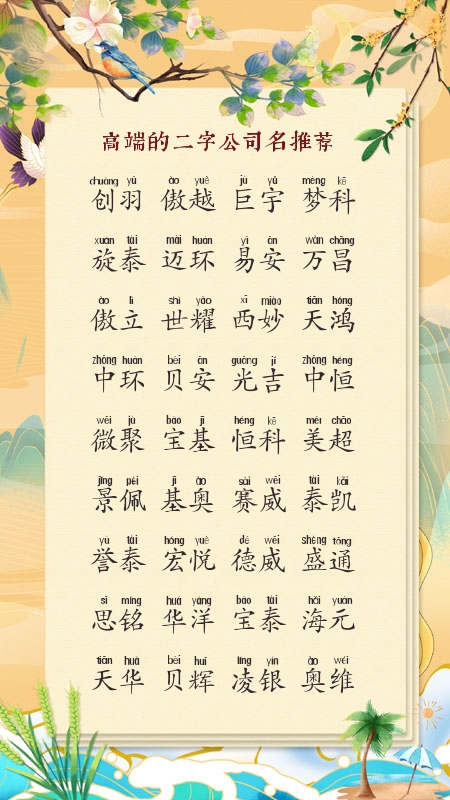 高端的二字公司名推荐
chuàng yǔ ào yuè jù yǔ mèng kē
创羽 傲越 巨宇 梦科
xuán tài mài huán yì ān wàn chāng
旋泰 迈环 易安 万昌
ào lì shì yào xī miào tiān hóng
傲立 世耀 西妙 天鸿
zhōng huán bèi ān guāng jí zhōng héng
中环 贝安 光吉 中恒
wēi jù bǎo jī héng kē měi chāo
微聚 宝基 恒科 美超
jǐng pèi jī ào sài wēi tài kǎi
景佩 基奥 赛威 泰凯
yù tài hóng yuè dé wēi shèng tōng
誉泰 宏悦 德威 盛通
sī míng huá yáng bǎo tài hǎi yuán
思铭 华洋 宝泰 海元
tiān huá bèi huī líng yín ào wéi
天华 贝辉 凌银 奥维